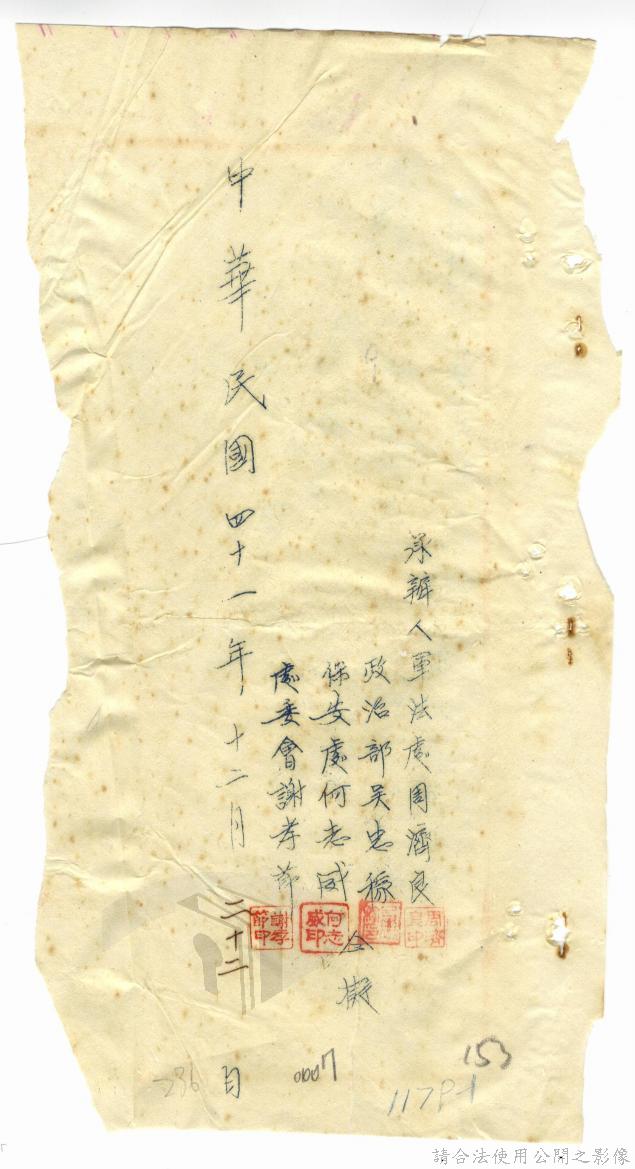 承辦人軍法處周濟良
政治部吳忠
保安處何志威
處委會謝孝節
仝擬
周濟良印
何志威印
謝孝節印
中華民國四十一年十二月二十二日
236
0007
117P-1
153
請合法使用公開之影像